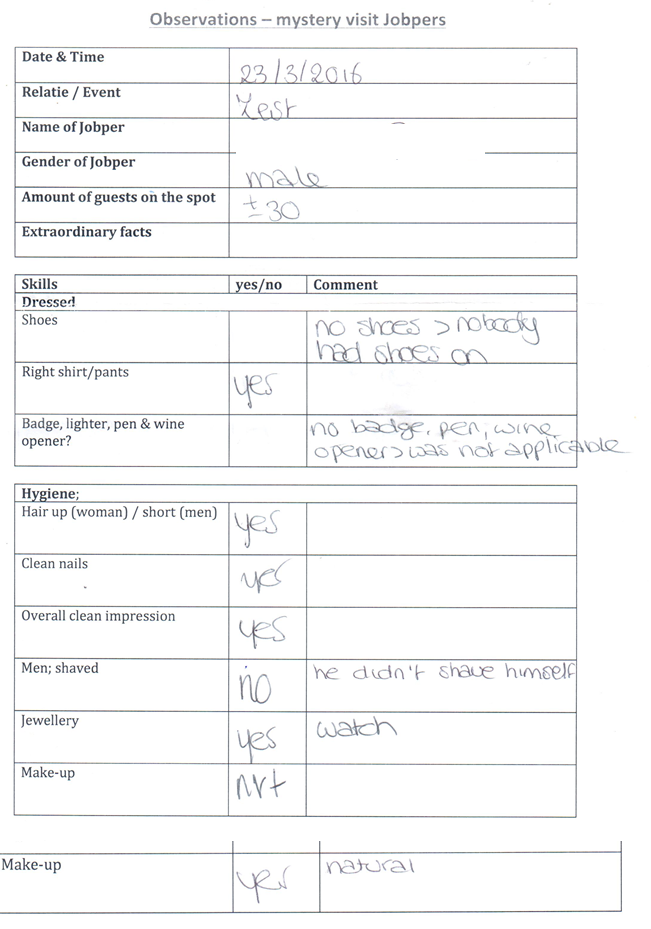 Observations – mystery visit Jobpers
Date & Time 23/3/2016
Relatie / Event Zest
Name of Jobper
Gender of Jobper male
Amount of guests on the spot ± 30
Extraordinary facts
Skills yes/no Comment
Dressed
Shoes no shoes > nobody
had shoes on
Right shirt/pants yes
Badge, lighter, pen & wine no badge, pen, wine
opener? opener > was not applicable
Hygiene;
Hair up (woman) / short (men) yes
Clean nails yes
Overall clean impression yes
Men; shaved no he didn't shave himself
Jewellery yes watch
Make-up nvt
Make-up yes natural